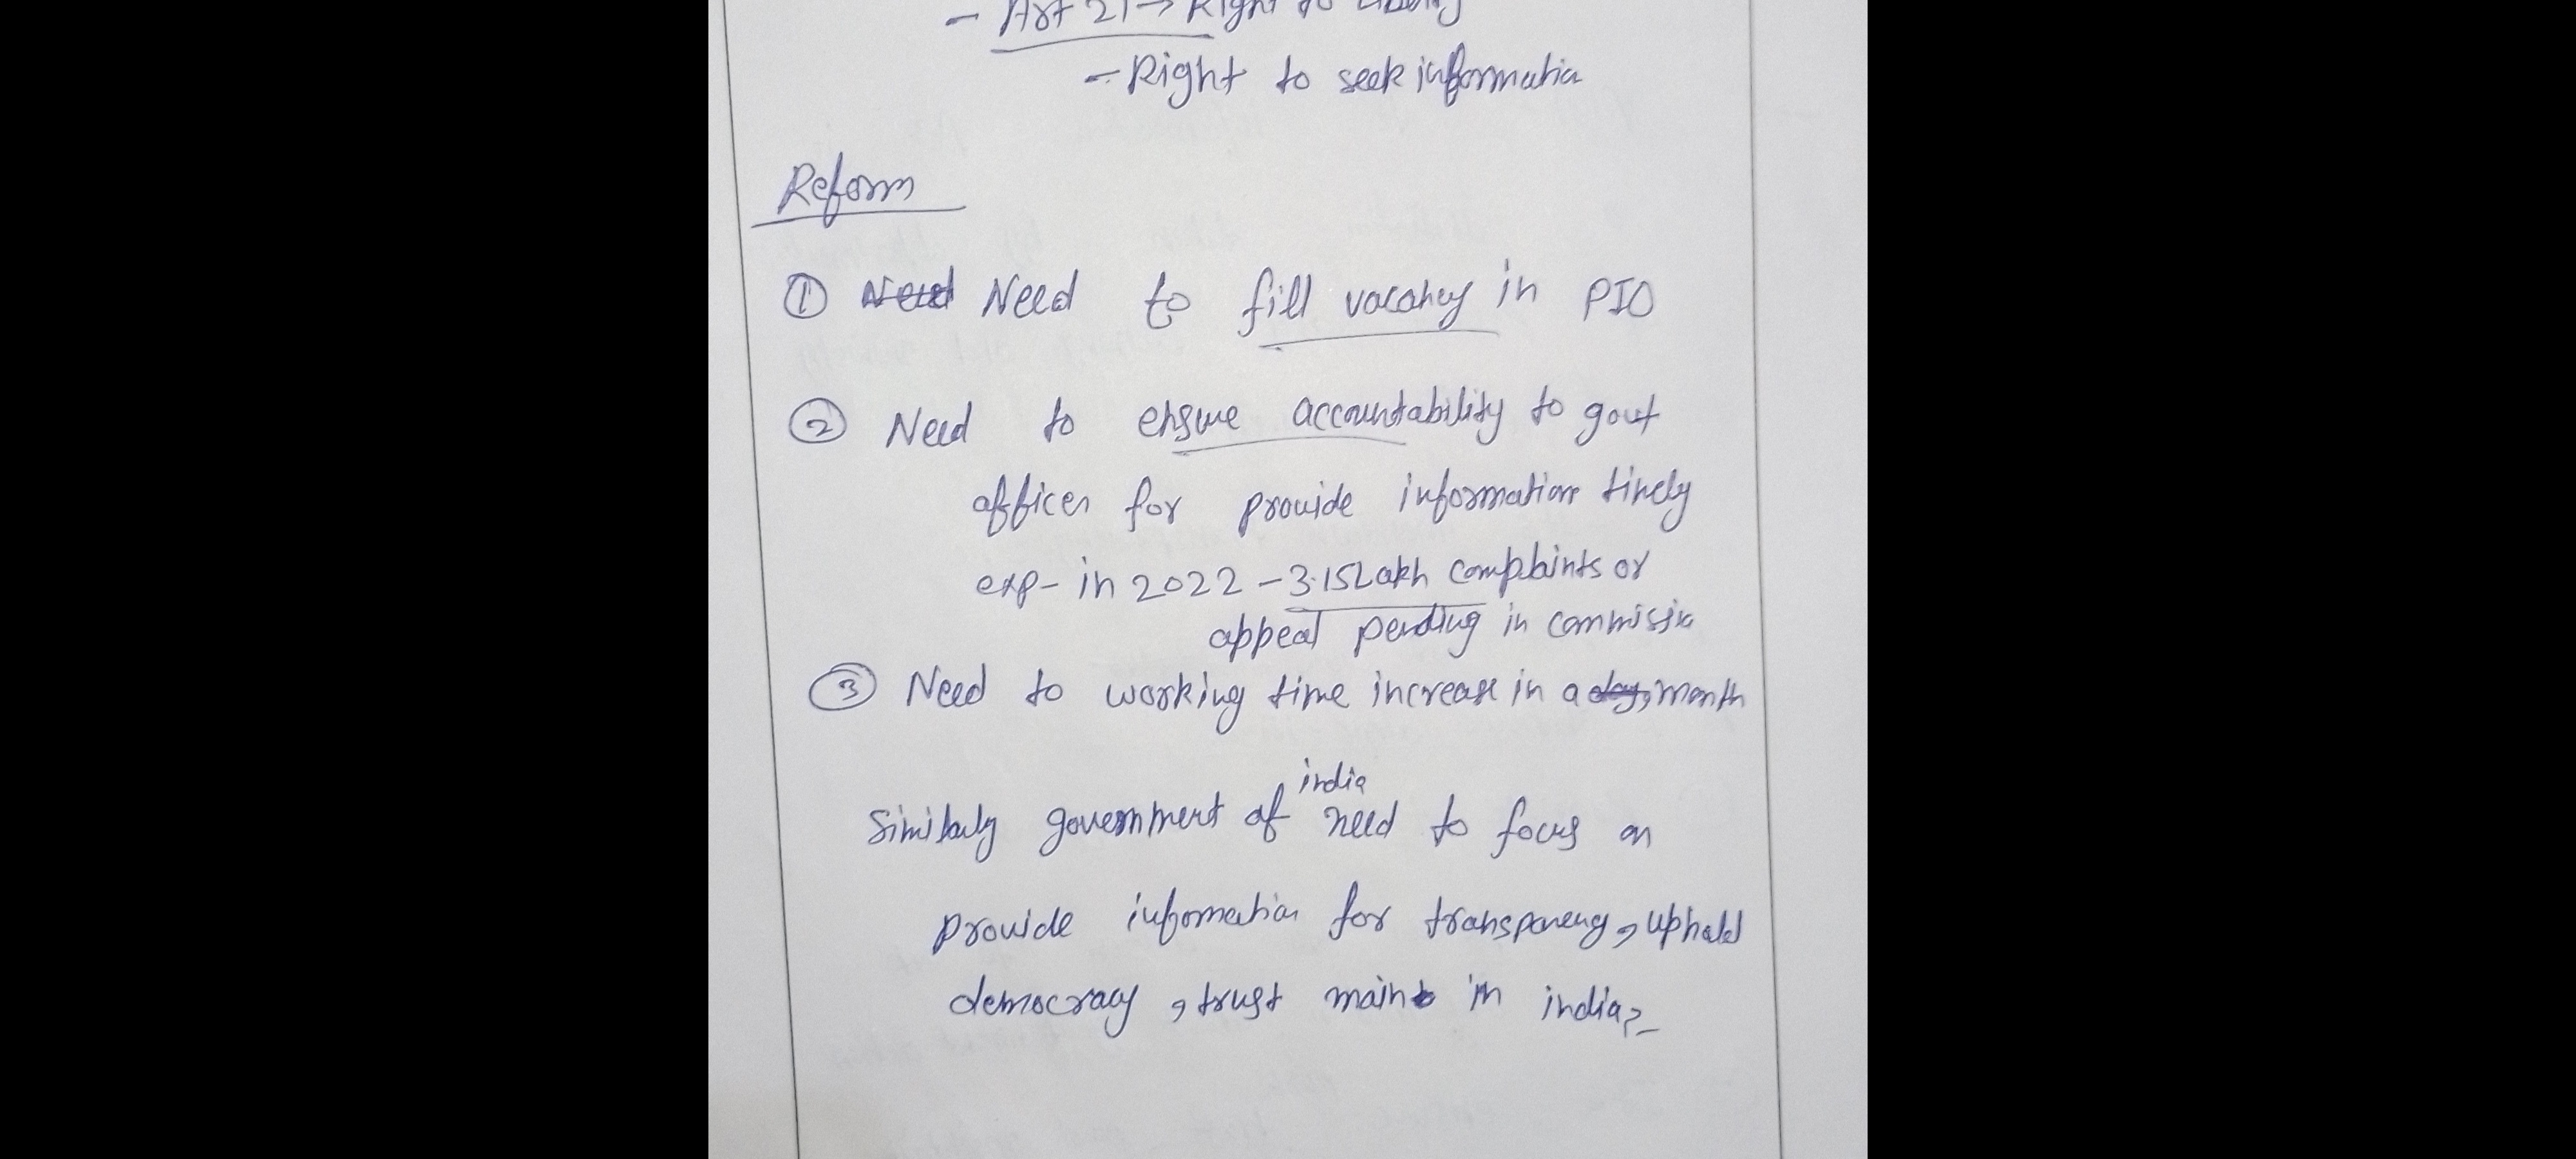 - Art 21 → Right to liberty
- Right to seek informatia
Reform
① Need Need to fill vacancy in PIO
② Need to ensure accountability to govt
officer for provide information timely
exp- in 2022 - 3.15 Lakh complaints or
appeal pending in commissin
③ Need to working time increase in a day, month
india
Similarly government of need to focus on
provide information for transparency, uphold
democracy, trust maint in india.